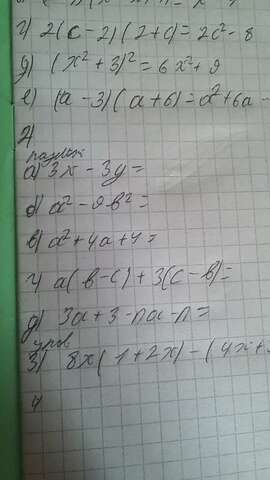 г) 2(c-2)(2+c)=2c²-8
д) (x²+3)²=6x²+9
е) (a-3)(a+6)=a²+6a-
2
а) 3x-3y=
б) a²-9b²=
в) a²+4a+4=
г) a(b-c)+3(c-b)=
д) 3a+3-na-n=
3) 8x(1+2x)-(4x+
4